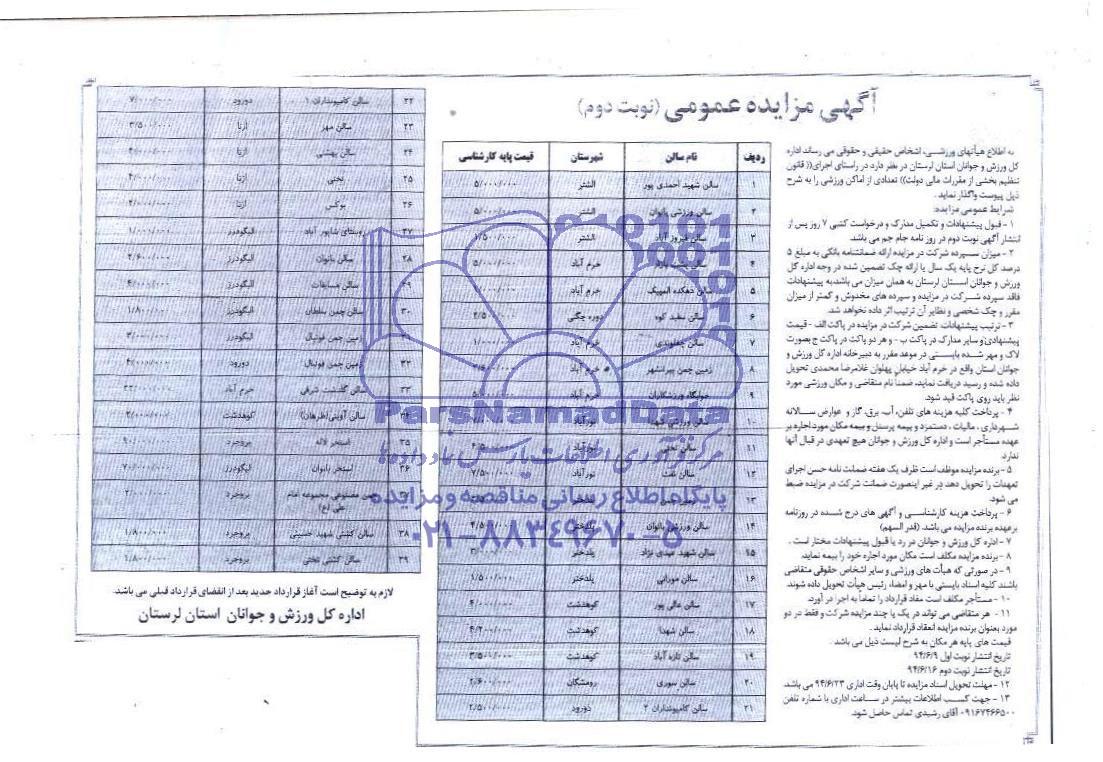 آگهی مزایده عمومی (نوبت دوم)
به اطلاع هیأتهای ورزشی، اشخاص حقیقی و حقوقی می رساند اداره
کل ورزش و جوانان استان لرستان در نظر دارد در راستای اجرای(( قانون
تنظیم بخشی از مقررات مالی دولت)) تعدادی از اماکن ورزشی را به شرح
ذیل پیوست واگذار نماید.
شرایط عمومی مزایده:
۱ - قبول پیشنهادات و تکمیل مدارک و درخواست کتبی ۷ روز پس از
انتشار آگهی نوبت دوم در روز نامه جام جم می باشد.
۲ - میزان سپرده شرکت در مزایده ارائه ضمانتنامه بانکی به مبلغ ۵
درصد کل نرخ پایه یک سال یا ارائه چک تضمین شده در وجه اداره کل
ورزش و جوانان استان لرستان به همان میزان می باشد.به پیشنهادات
فاقد سپرده شرکت در مزایده و سپرده های مخدوش و کمتر از میزان
مقرر و چک شخصی و نظایر آن ترتیب اثر داده نخواهد شد.
۳ - ترتیب پیشنهادات: تضمین شرکت در مزایده در پاکت الف - قیمت
پیشنهادی و سایر مدارک در پاکت ب - و هر دو پاکت در پاکت ج بصورت
لاک و مهر شده بایستی در موعد مقرر به دبیرخانه اداره کل ورزش و
جوانان استان واقع در خرم آباد خیابان پهلوان غلامرضا محمدی تحویل
داده شده و رسید دریافت نماید، ضمنا نام متقاضی و مکان ورزشی مورد
نظر باید روی پاکت قید شود.
۴ - پرداخت کلیه هزینه های تلفن، آب، برق، گاز و عوارض سالانه
شهرداری ، مالیات ، دستمزد و بیمه پرسنل و بیمه مکان مورد اجاره بر
عهده مستأجر است و اداره کل ورزش و جوانان هیچ تعهدی در قبال آنها
ندارد.
۵ - برنده مزایده موظف است ظرف یک هفته ضمانت نامه حسن اجرای
تعهدات را تحویل دهد در غیر اینصورت ضمانت شرکت در مزایده ضبط
می شود.
۶ - پرداخت هزینه کارشناسی و آگهی های درج شده در روزنامه
بر عهده برنده مزایده می باشد. (قدر السهم)
۷ - اداره کل ورزش و جوانان در رد یا قبول پیشنهادات مختار است .
۸ - برنده مزایده مکلف است مکان مورد اجاره خود را بیمه نماید.
۹ - در صورتی که هیأت های ورزشی و سایر اشخاص حقوقی متقاضی
باشند کلیه اسناد بایستی با مهر و امضاء رئیس هیأت تحویل داده شوند.
۱۰ - مستأجر مکلف است مفاد قرارداد را تماماً به اجرا در آورد.
۱۱ - هر متقاضی می تواند در یک یا چند مزایده شرکت و فقط در دو
مورد بعنوان برنده مزایده انعقاد قرارداد نماید.
قیمت های پایه هر مکان به شرح لیست ذیل می باشد .
تاریخ انتشار نوبت اول ۹۴/۶/۹
تاریخ انتشار نوبت دوم ۹۴/۶/۱۶
۱۲ - مهلت تحویل اسناد مزایده تا پایان وقت اداری ۹۴/۶/۲۳ می باشد.
۱۳ - جهت کسب اطلاعات بیشتر در ساعت اداری با شماره تلفن
۰۹۱۶۷۴۶۶۵۰۰ آقای رشیدی تماس حاصل شود.
ردیف نام سالن شهرستان قیمت پایه کارشناسی
۱ سالن شهید احمدی پور الشتر ۵/۰۰۰/۰۰۰
۲ سالن ورزشی بانوان الشتر ۵/۰۰۰/۰۰۰
۳ سالن فیروز آباد الشتر ۱/۵۰۰/۰۰۰
۴ سالن خرم آباد ۵/۰۰۰/۰۰۰
۵ سالن دهکده المپیک خرم آباد
۶ سالن سفید کوه دوره چگنی ۲/۵
۷ سالن خرم آباد ۱/۰۰۰/۰۰۰
۸ زمین چمن پیرانشهر خرم آباد
۹ خوابگاه ورزشکاران خرم آباد
۱۰ سالن ورزشی شهدا نورآباد
۱۱ سالن نورآباد
۱۲ سالن نفت نورآباد ۷/۵۰۰/۰۰۰
۱۳ زمین چمن پلدختر
۱۴ سالن ورزشی بانوان پلدختر
۱۵ سالن شهید عیدی نژاد پلدختر ۳/۰۰۰/۰۰۰
۱۶ سالن مورانی پلدختر ۱/۵۰۰/۰۰۰
۱۷ سالن عالی پور کوهدشت ۴/۰۰۰/۰۰۰
۱۸ سالن شهدا کوهدشت ۴/۲۰۰/۰۰۰
۱۹ سالن تازه آباد کوهدشت ۳/۵۰۰/۰۰۰
۲۰ سالن سوری رومشکان ۲/۶۰۰/۰۰۰
۲۱ سالن کامیونداران ۲ دورود ۲/۵۰۰/۰۰۰
۲۲ سالن کامیونداران ۱ دورود ۷/۰۰۰/۰۰۰
۲۳ سالن مهر ازنا ۳/۵۰۰/۰۰۰
۲۴ سالن بهشتی ازنا
۲۵ تختی ازنا
۲۶ بوکس ازنا ۲/۰۰۰/۰۰۰
۲۷ روستای شاپور آباد الیگودرز ۱/۰۰۰/۰۰۰
۲۸ سالن بانوان الیگودرز ۲/۶۰۰/۰۰۰
۲۹ سالن مسابقات الیگودرز
۳۰ سالن چمن سلطان الیگودرز ۱/۸۰۰/۰۰۰
زمین چمن فوتبال الیگودرز ۳/۰۰۰/۰۰۰
۳۲ زمین چمن فوتبال دورود ۴/۰۰۰/۰۰۰
۳۳ سالن گلدشت شرقی خرم آباد
۳۴ سالن آوینی(طرهان) کوهدشت ۲/۰۰۰/۰۰۰
۳۵ استخر لاله بروجرد
۳۶ استخر بانوان الیگودرز
چمن مصنوعی مجموعه امام علی (ع) بروجرد ۲/۰۰۰/۰۰۰
۳۸ سالن کشتی شهید حسینی بروجرد ۱/۸۰۰/۰۰۰
۳۹ سالن کشتی تختی بروجرد ۱/۸۰۰/۰۰۰
لازم به توضیح است آغاز قرارداد جدید بعد از انقضای قرارداد قبلی می باشد.
اداره کل ورزش و جوانان استان لرستان
ParsNamadData
مرکز فن آوری اطلاعات پارس نماد داده ها
پایگاه اطلاع رسانی مناقصه و مزایده
۰۲۱-۸۸۳۴۹۶۷۰-۵